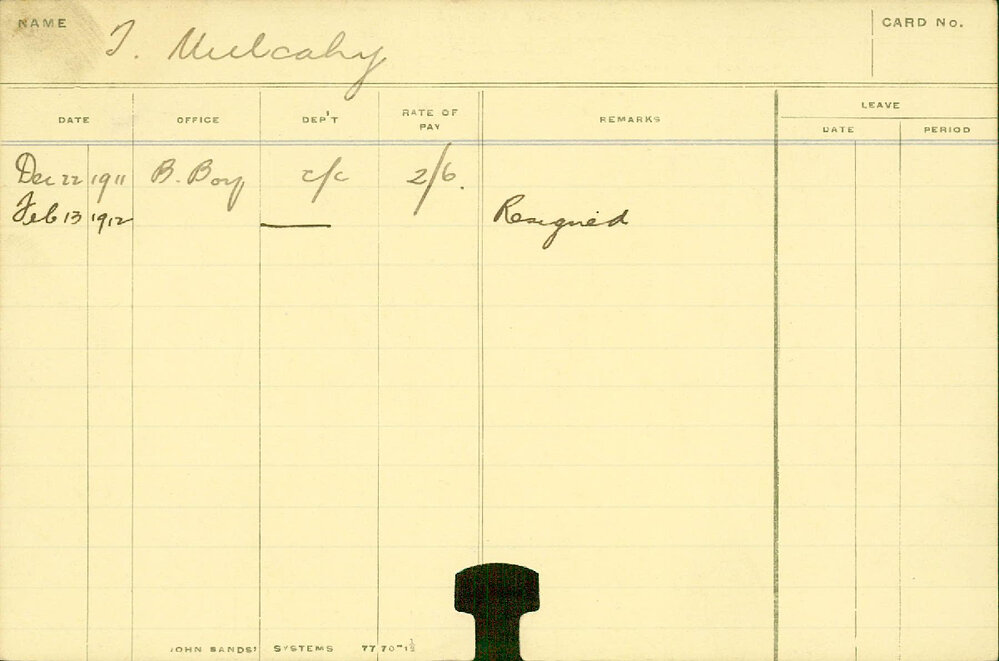 NAME T. Mulcahy CARD No.
LEAVE
DATE OFFICE DEP'T RATE OF PAY REMARKS DATE PERIOD
Dec 22 1911 B. Boy c/c 2/6.
Feb 13 1912 Resigned
JOHN SANDS' SYSTEMS 77 70-1½